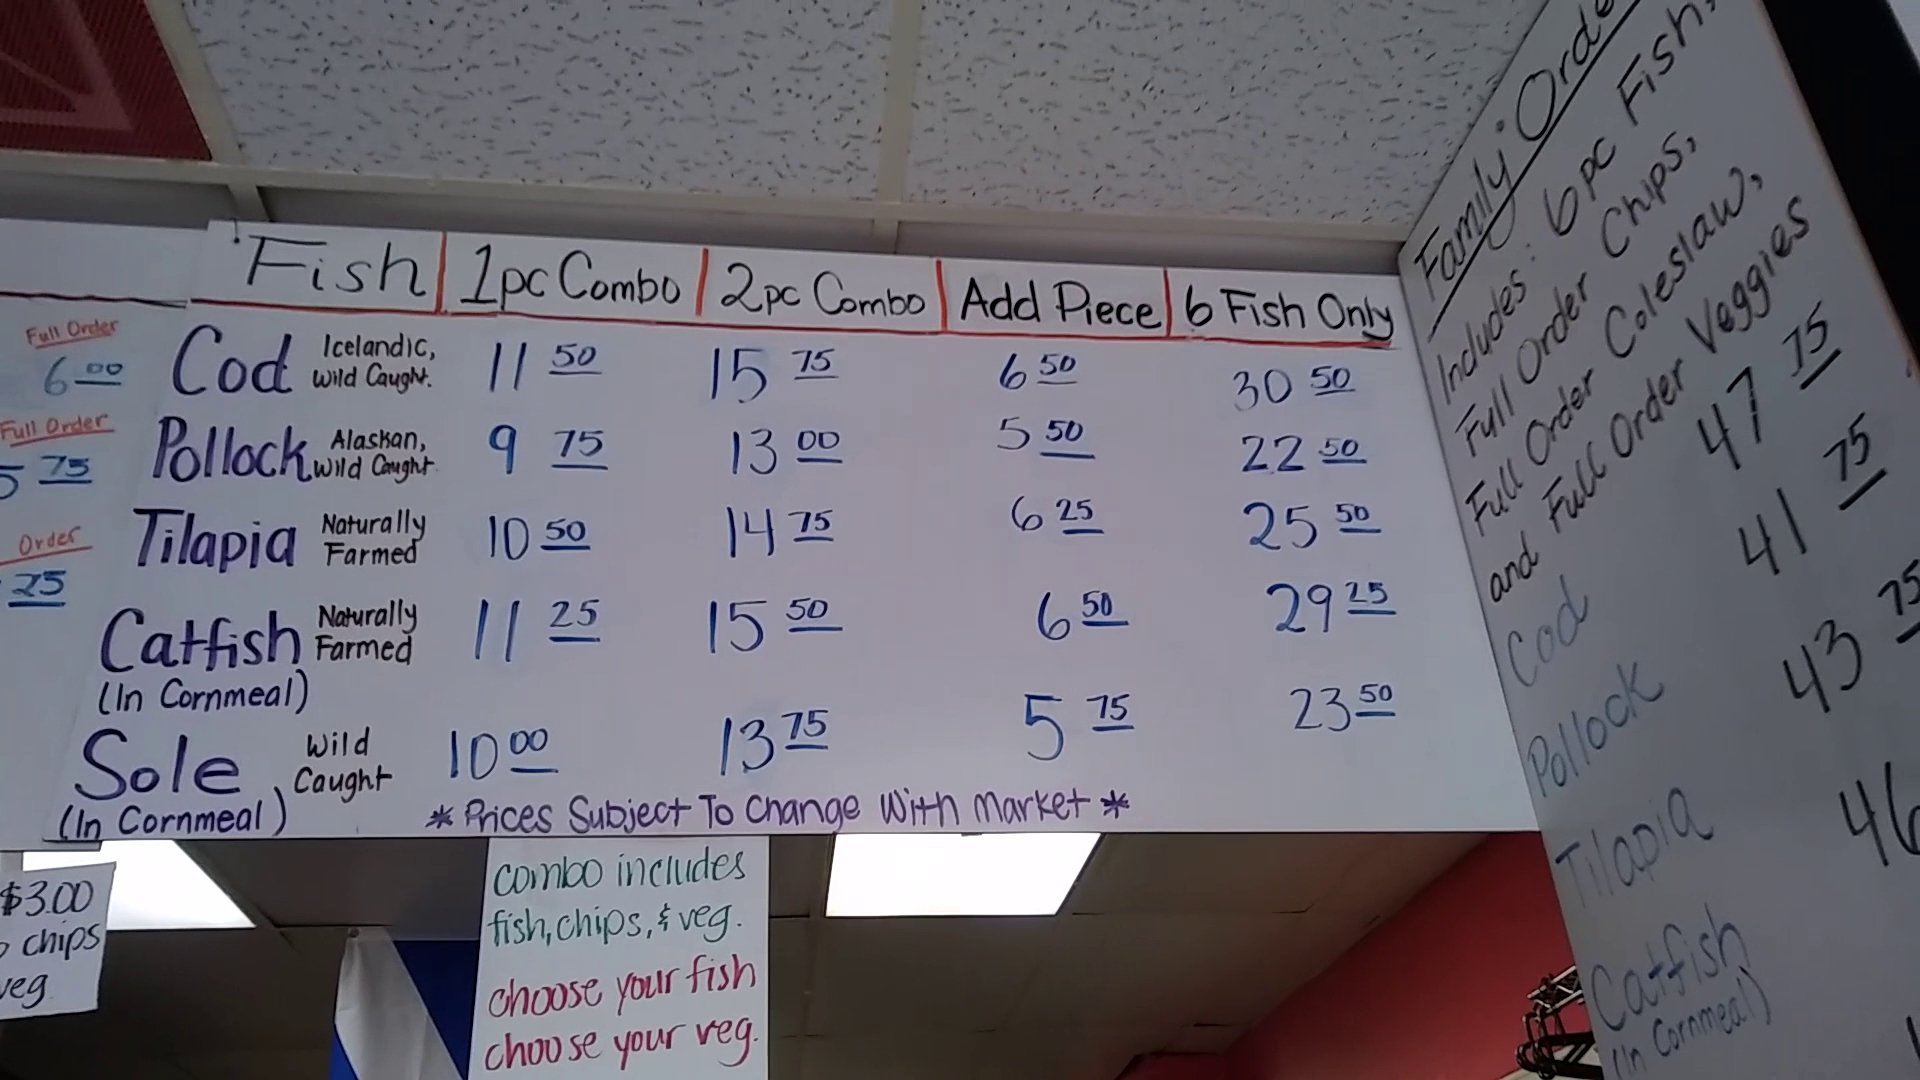 Full Order
6 00
Full Order
5 75
Order
25
Fish 1pc Combo 2pc Combo Add Piece 6 Fish Only
Cod Icelandic, Wild Caught. 11 50 15 75 6 50 30 50
Pollock Alaskan, Wild Caught 9 75 13 00 5 50 22 50
Tilapia Naturally Farmed 10 50 14 75 6 25 25 50
Catfish Naturally Farmed 11 25 15 50 6 50 29 25
(In Cornmeal)
Sole Wild Caught 10 00 13 75 5 75 23 50
(In Cornmeal)
* Prices Subject To Change With Market *
$3.00
chips
veg
combo includes
fish, chips, & veg.
choose your fish
choose your veg.
Family Orde
Includes: 6 pc Fish,
Full Order Chips,
Full Order Coleslaw,
and Full Order Veggies
Cod 47 75
Pollock 41 75
Tilapia 43 75
Catfish 46
(In Cornmeal)